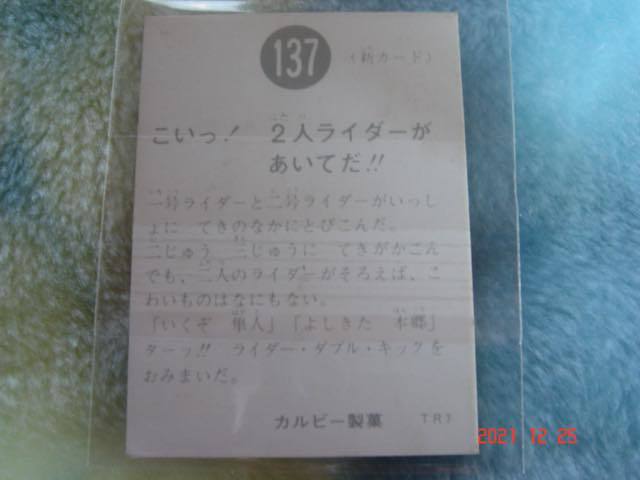 137 (新カード)
こいっ! 2人ライダーが
あいてだ!!
一号ライダーと二号ライダーがいっし
ょに てきのなかにとびこんだ。
二じゅう 三じゅうに てきがかこん
でも、二人のライダーがそろえば、こ
わいものはなにもない。
「いくぞ 隼人」「よしきた 本郷」
ターッ!! ライダー・ダブル・キックを
おみまいだ。
カルビー製菓 TR7
2021 12 25